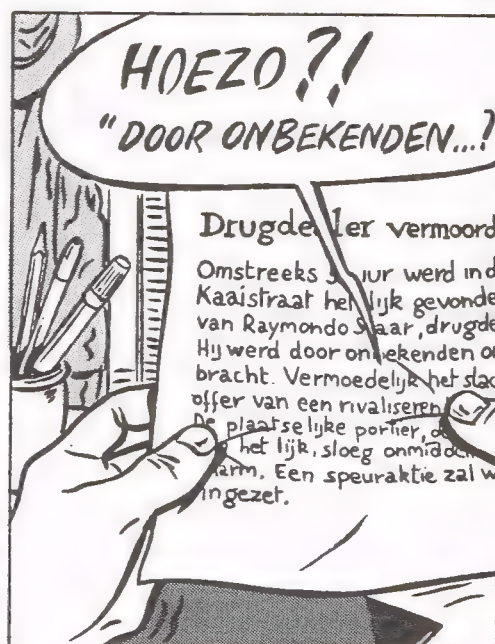 HOEZO?!
"DOOR ONBEKENDEN...?
Drugdealer vermoord
Omstreeks uur werd in d
Kaaistraat het lijk gevonde
van Raymondo drugde
Hij werd door onbekenden o
bracht. Vermoedelijk het slac
offer van een rivaliseren
De plaatselijke portier,
het lijk, sloeg onmiddel
Een speuraktie zal w
ingezet.